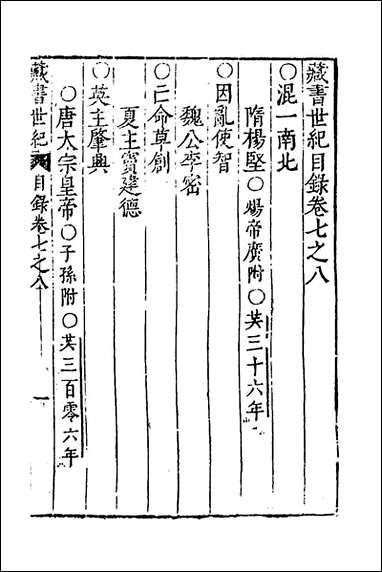 藏書世紀目錄卷七之八
○混一南北
隋楊堅○煬帝廣附○共三十六年
○因亂使智
魏公李密
○亡命草創
夏主竇建德
○英主肇興
○唐太宗皇帝○子孫附○共三百零六年
藏書世紀 目錄卷七之八 一